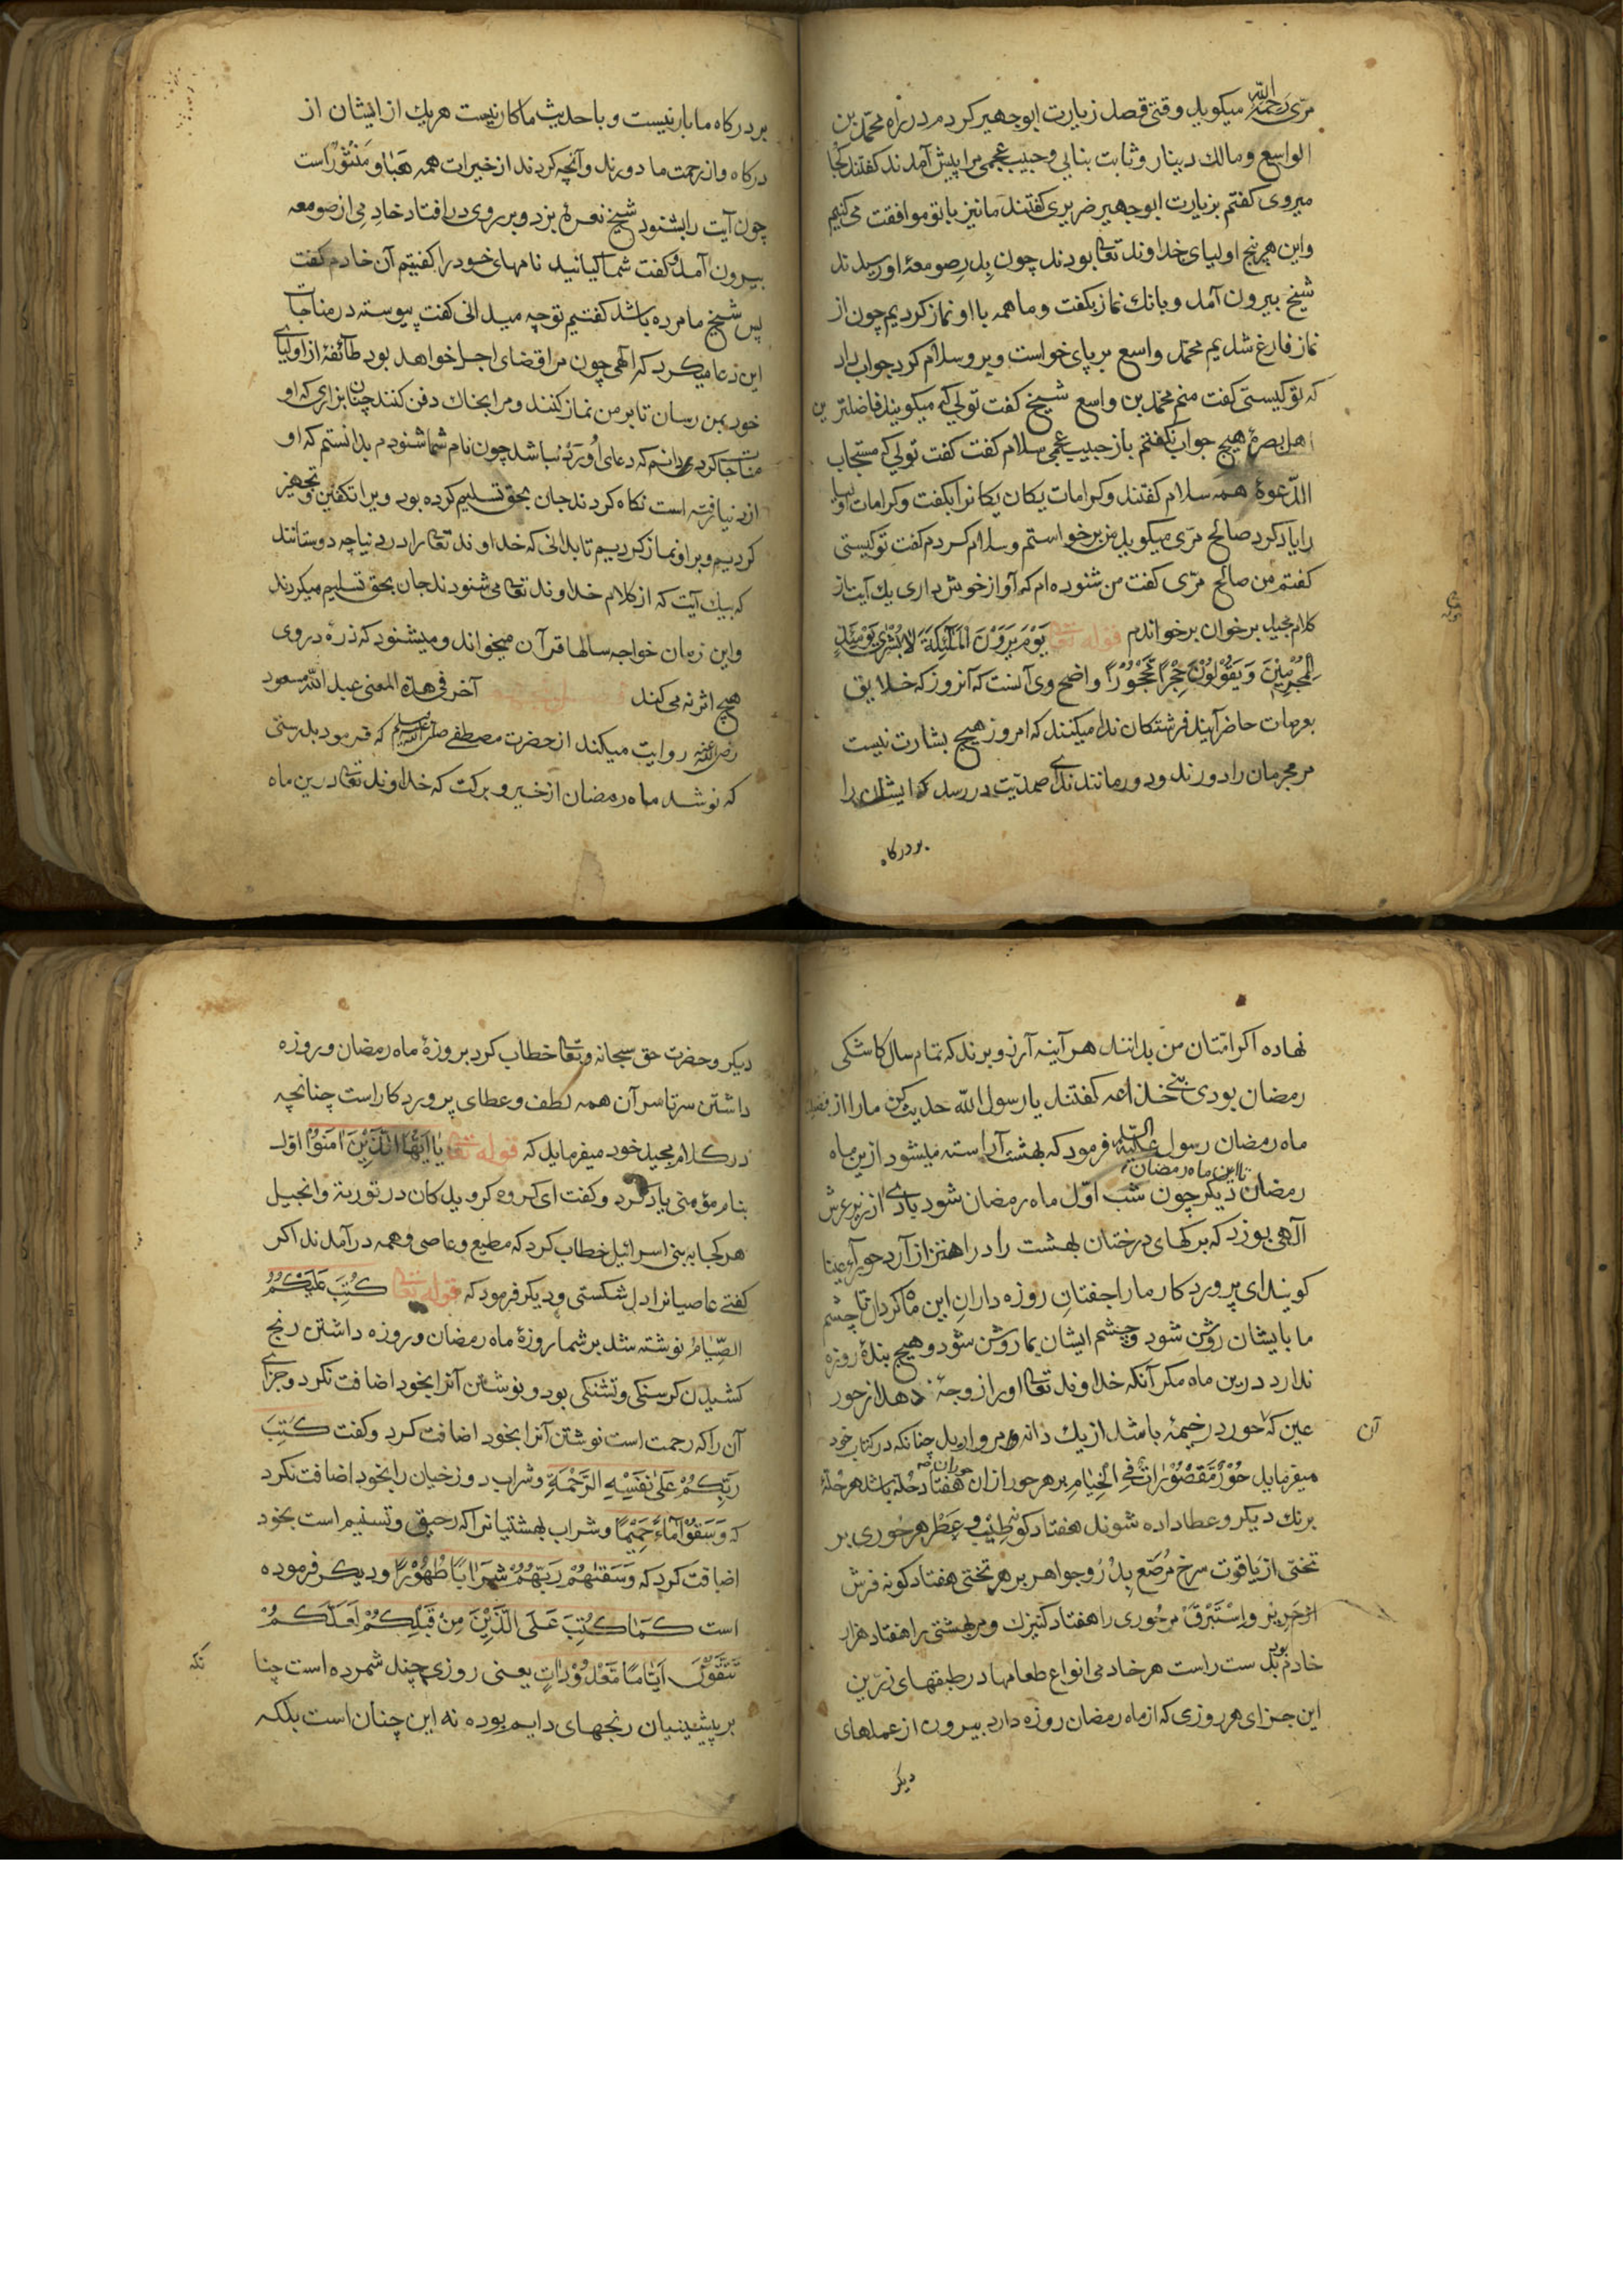 مرّی رحمة الله میکوید وقتی قصد زیارت ابو جهیر کردم در راه محمّد بن
الواسع و مالك دینار و ثابت بنانی و حبیب عجمی مرا پیش آمدند کفتند کجا
میروی کفتم بزیارت ابو جهیر ضریری کفتند ما نیز با تو موافقت می کنیم
و این هر پنج اولیای خداوند تعالی بودند چون بدر صومعهٔ او رسیدند
شیخ بیرون آمد و بانك نماز بکفت و ما همه با او نماز کردیم چون از
نماز فارغ شدیم محمّد واسع بر پای خواست و برو سلام کرد جواب داد
که تو کیستی کفت منم محمّد بن واسع شیخ کفت تو لی که میکویند فاضلترین
اهل بصرهٔ هیچ جواب نکفتم باز حبیب عجمی سلام کفت کفت تو لی که مستجاب
الدّعوة همه سلام کفتند و کرامات یکان یکانرا بکفت و کرامات اولیا
را یاد کرد صالح مرّی میکوید من برخواستم و سلام کردم کفت تو کیستی
کفتم من صالح مرّی کفت من شنوده ام که آواز خوش داری یك آیت از
کلام مجید بر خوان بر خواندم قوله تعالی یَوْمَ یَرَوْنَ الْمَلٰٓئِکَةَ لَا بُشْرٰی یَوْمَئِذٍ
لِلْمُجْرِمِیْنَ وَ یَقُوْلُوْنَ حِجْرًا مَحْجُوْرًا واضح وی آنست که آنروز که خلایق
بعرصات حاضر آیند فرشتکان ندا میکنند که امروز هیچ بشارت نیست
مر مجرمان را دورند و دور مانند ندای صمدیّت در رسد که ایشان را
بر درکاه
بر درکاه ما بار نیست و با حدیث ما کار نیست هر یك از ایشان از
درکاه و از رحمت ما دورند و آنچه کردند از خیرات همه هَبَاءً مَنْثُوْرًا است
چون آیت را بشنود شیخ نعرهٔ بزد و بر روی در افتاد خادمی از صومعه
بیرون آمد و کفت شما کیانید نامهای خود را کفتیم آن خادم کفت
پس شیخ ما مرده باشد کفتیم تو چه میدانی کفت پیوسته در مناجات
این دعا میکرد که الٓهی چون مرا قضای اجل خواهد بود طآئفهٔ از اولیای
خود بمن رسان تا بر من نماز کنند و مرا بخاك دفن کنند چنان بزاری که او
مناجات کردی دانم که دعای او رد نباشد چون نام شما شنودم بدانستم که او
از دنیا رفته است نکاه کردند جان بحق تسلیم کرده بود ویرا تکفین و تجهیز
کردیم و بر او نماز کردیم تا بدانی که خداوند تعالی را در دنیا چه دوستانند
که بیك آیت که از کلام خداوند تعالی می شنودند جان بحق تسلیم میکردند
و این زمان خواجه سالها قرآن میخواند و میشنود که ذرهٔ در وی
هیچ اثر نه می کند آخر فی هذه المعنی عبد الله مسعود
رضی الله عنه روایت میکند از حضرت مصطفی صلی الله علیه وسلم که فرمود بدرستی
که نوشد ماه رمضان از خیر و برکت که خداوند تعالی درین ماه
نهاده اکر امّتان من بدانند هر آینه آرزو برند که تمام سال کاشکی
رمضان بودی بنی خذاعه کفتند یا رسول الله حدیث کن ما را از فضل
ماه رمضان رسول علیه السلام فرمود که بهشت آراسته میشود ازین ماه
تا این ماه رمضان
رمضان دیکر چون شب اوّل ماه رمضان شود بادی از زیر عرش
الٓهی بوزد که برکهای درختان بهشت را در اهتزاز آرد حورآء عینا
کویند ای پروردکار ما را جفتان روزه داران این ماه کردان تا چشم
ما بایشان روشن شود و چشم ایشان بما روشن شود و هیچ بندهٔ روزه
ندارد درین ماه مکر آنکه خداوند تعالی او را زوجهٔ دهد از حور
عین که حور در خیمهٔ باشد از یك دانه مروارید چنانکه در کتاب خود
آن
میفرماید حُوْرٌ مَقْصُوْرَاتٌ فِی الْخِیَامِ بر هر حور از آن حوران هفتاد حله باشد هر حلهٔ
برنك دیکر و عطا داده شوند هفتاد کونه طِیْب و عِطْر هر حوری بر
تختی از یاقوت سرخ مُرَصّع بدُرّ و جواهر بر هر تختی هفتاد کونه فرش
از حریر و اِسْتَبْرَق هر حوری را هفتاد کنیزك و هر بهشتی را هفتاد هزار
خادم بود بدست راست هر خادمی انواع طعامها در طبقهای زرّین
این جزای هر روزی که از ماه رمضان روزه دارد بیرون از عملهای
دیکر
دیکر و حضرت حق سبحانه و تعالی خطاب کرد بروزهٔ ماه رمضان و روزه
داشتن سرتاسر آن همه لطف و عطای پروردکار است چنانچه
در کلام مجید خود میفرماید که قوله تعالی یٰٓا اَیُّهَا الَّذِیْنَ اٰمَنُوْا اوّل
بنام مؤمنی یاد کرد و کفت ای کروه کرویدکان در توریة و انجیل
هر کجا به بنی اسرائیل خطاب کرد که مطیع و عاصی و همه در آمدند اکر
کفتی عاصیانرا دل شکستی و دیکر فرمود که قوله تعالی کُتِبَ عَلَیْکُمُ
الصِّیَامُ نوشته شد بر شما روزهٔ ماه رمضان و روزه داشتن رنج
کشیدن کرسنکی و تشنکی بود و نوشتن آنرا بخود اضافت نکرد و جزای
آن را که رحمت است نوشتن آنرا بخود اضافت کرد و کفت کَتَبَ
رَبُّکُمْ عَلٰی نَفْسِهِ الرَّحْمَةَ و شراب دوزخیان را بخود اضافت نکرد
که وَسُقُوْا مَآءً حَمِیْمًا و شراب بهشتیانرا که رحیق و تسنیم است بخود
اضافت کرد که وَسَقٰهُمْ رَبُّهُمْ شَرَابًا طَهُوْرًا و دیکر فرموده
است کَمَا کُتِبَ عَلَی الَّذِیْنَ مِنْ قَبْلِکُمْ لَعَلَّکُمْ
تَتَّقُوْنَ اَیَّامًا مَعْدُوْدَاتٍ یعنی روزی چند شمرده است چنا
نکه
بر پیشینیان رنجهای دایم بوده نه این چنان است بلکه